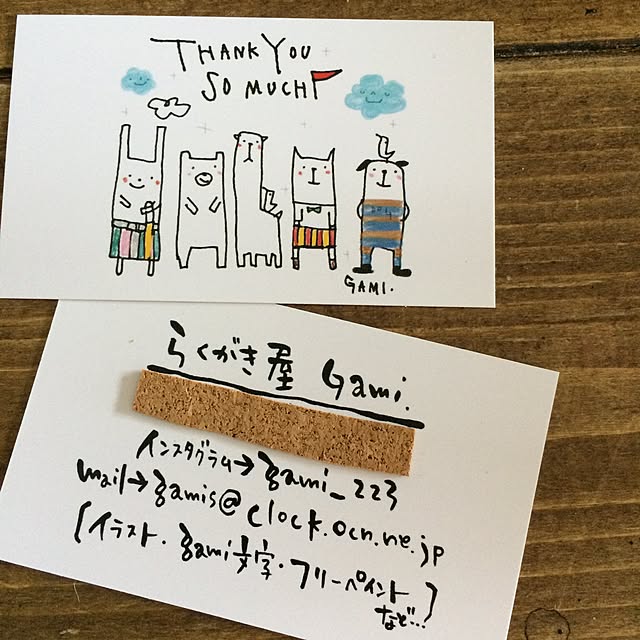 THANK YOU
SO MUCH
GAMI.
らくがき屋 Gami.
インスタグラム→gami_223
mail→gamis@clock.ocn.ne.jp
[イラスト・gami文字・フリーペイント
など…]